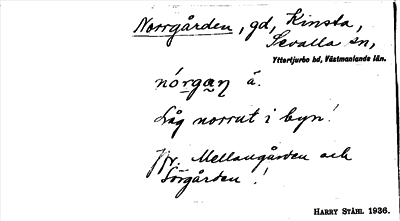 Norrgården, gd, Kinsta,
Sevalla sn,
Yttertjurbo hd, Västmanlands län.
nórgaŋ á.
Låg norrut i byn!
Jfr. Mellangården och
Sörgården!
HARRY STÅHL 1936.